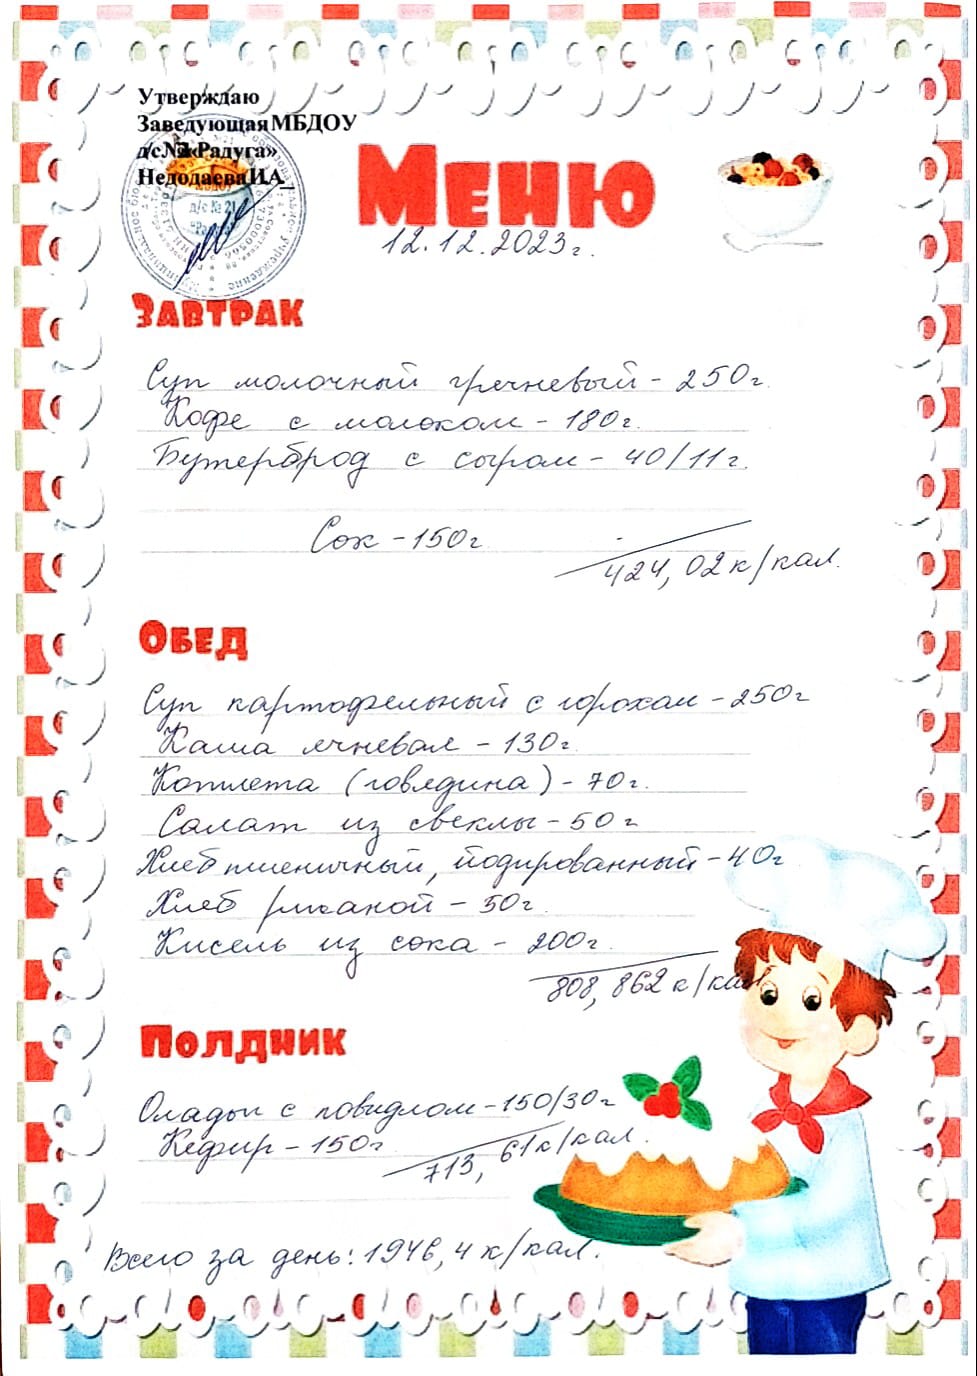 Утверждаю
Заведующая МБДОУ
д/с№ «Радуга»
Недодаева И.А_
д/с № 21
Меню
12.12.2023г.
Завтрак
Суп молочный гречневый - 250г.
Кофе с молоком - 180г.
Бутерброд с сыром - 40/11г.
Сок - 150г
424,02 к/кал.
Обед
Суп картофельный с горохом - 250г
Каша ячневая - 130г.
Котлета (говядина) - 70г.
Салат из свеклы - 50г
Хлеб пшеничный, йодированный - 40г
Хлеб ржаной - 50г.
Кисель из сока - 200г.
808,862 к/кал
Полдник
Оладьи с повидлом - 150/30г
Кефир - 150г
713,61к/кал.
Всего за день: 1946,4 к/кал.